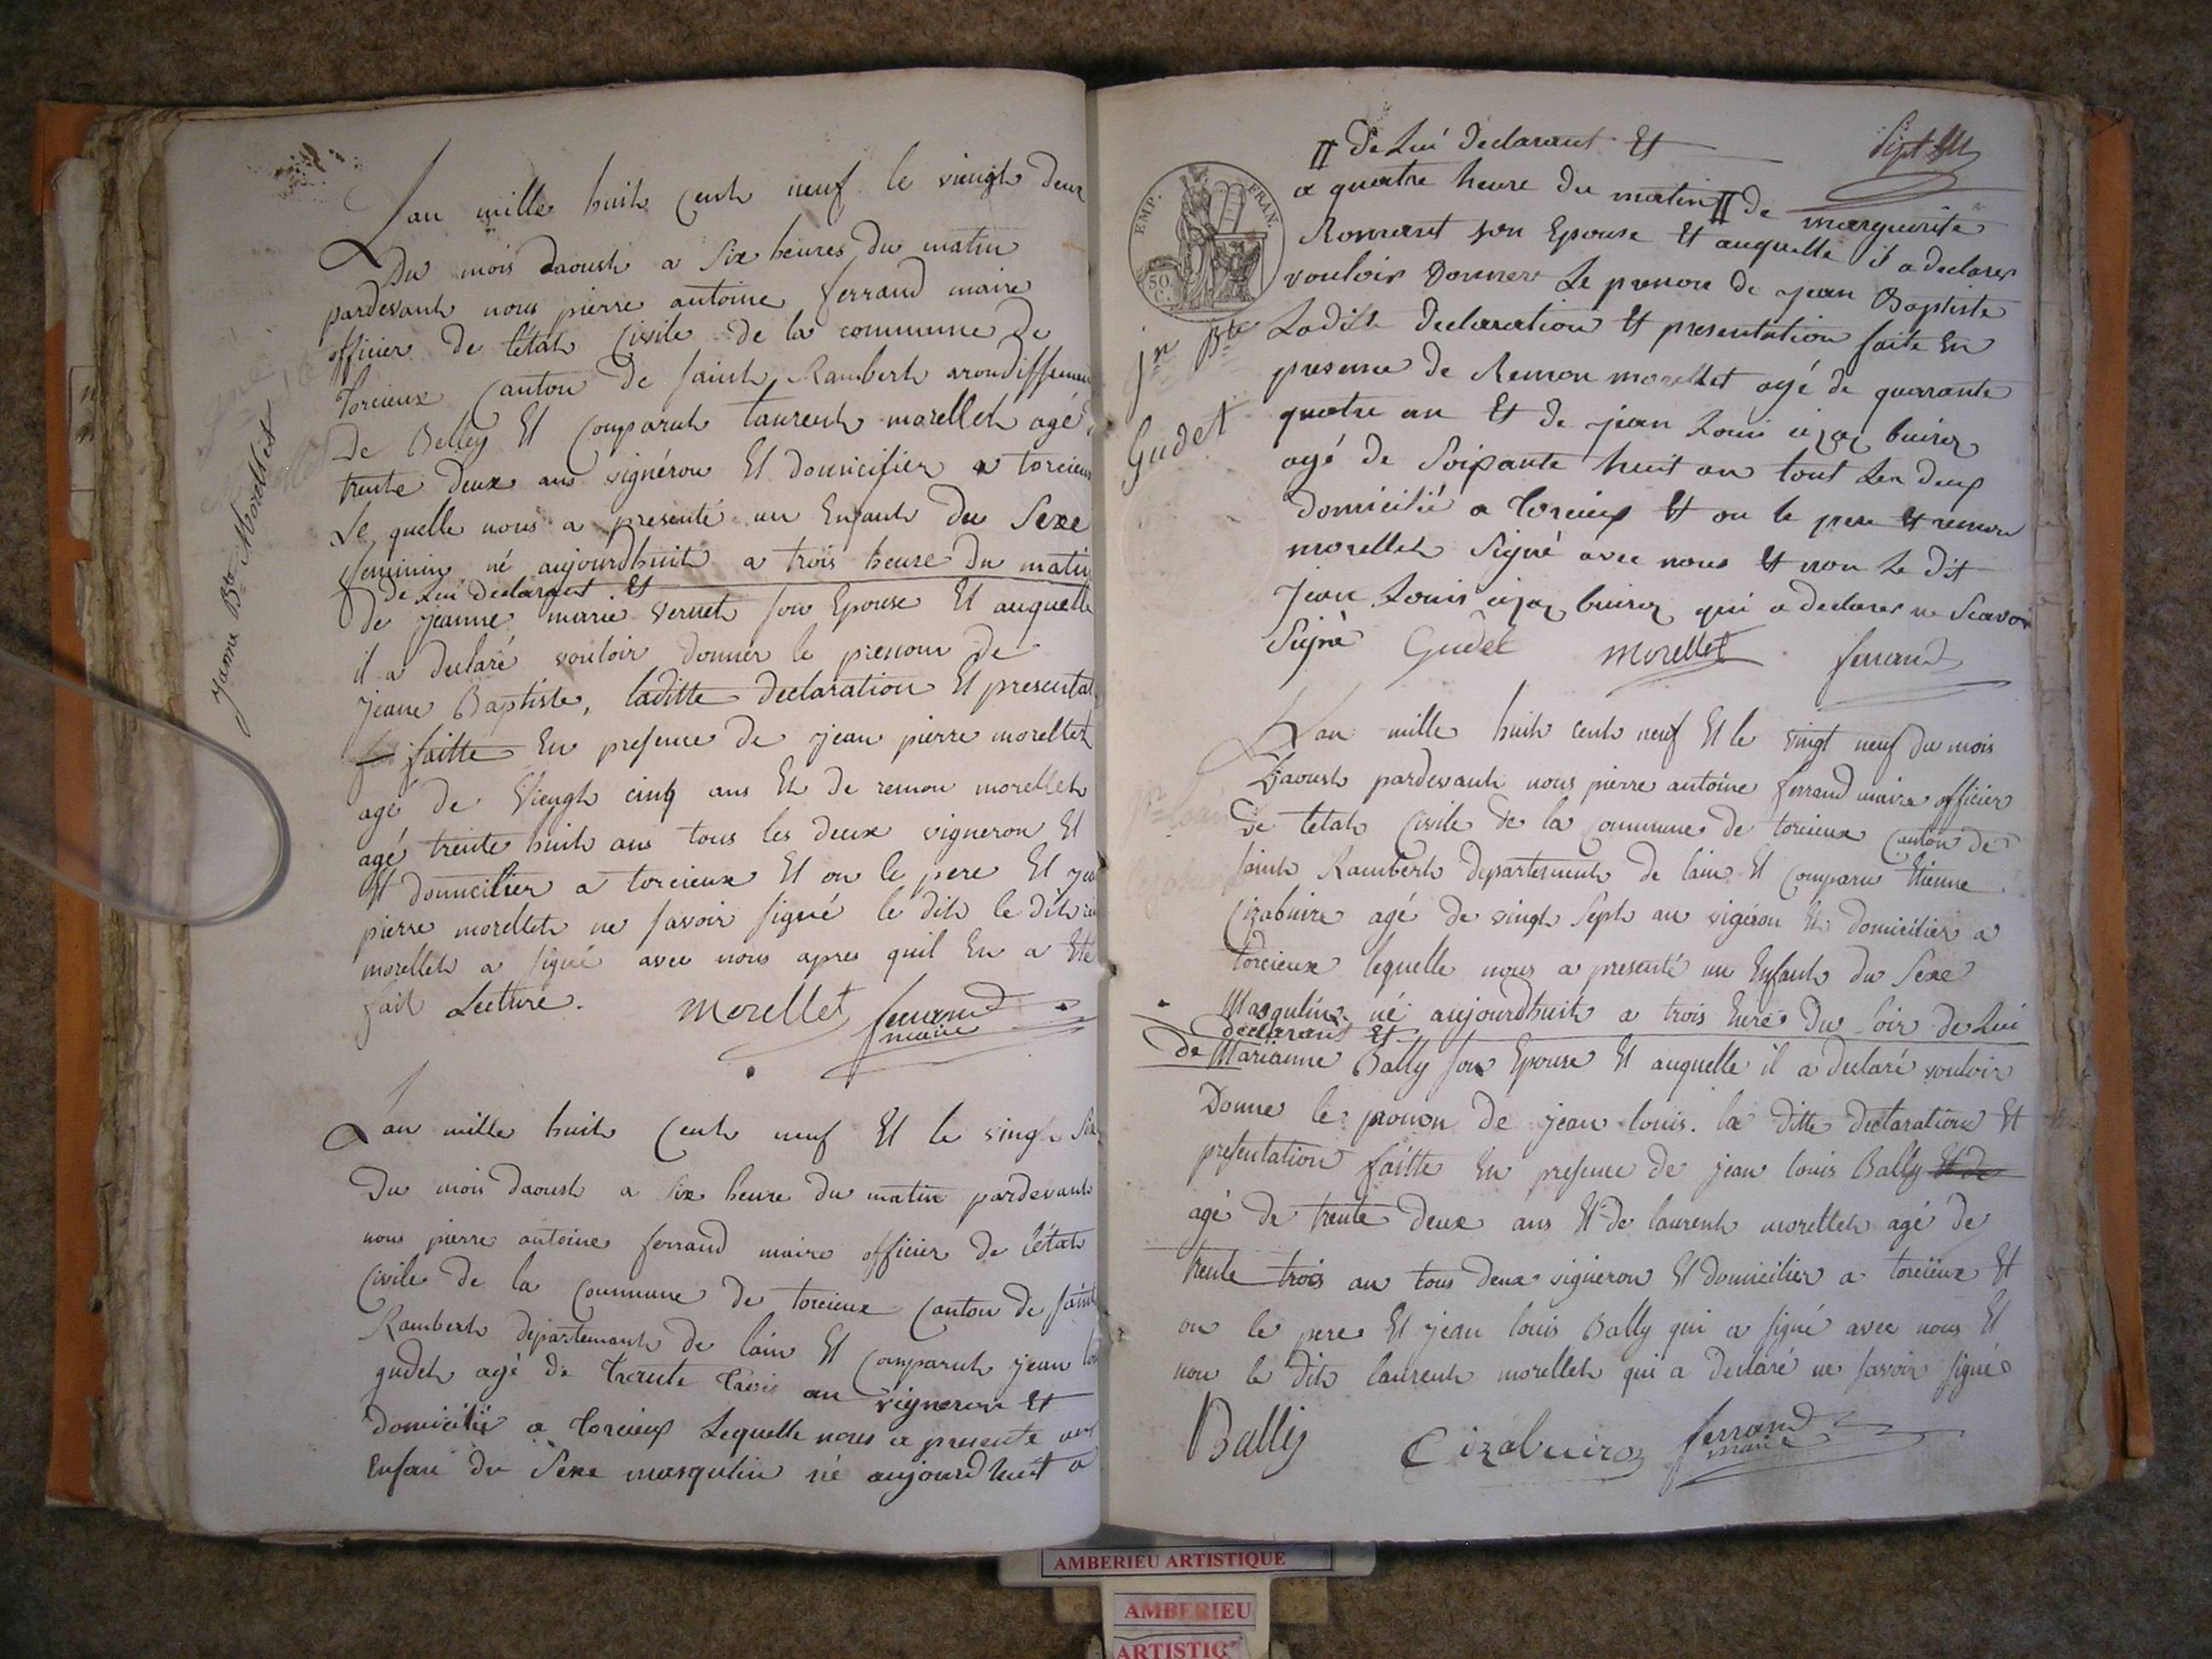 Jeanne Bte Morellet
Lan mille huit Cent neuf le viengt deux
Du mois daoust a Six heures du matin
pardevant nous pierre antoine ferrand maire
officier de l'état Civile de la commune de
torcieux Canton de saint Rambert arondissemen
De Belley Et Comparut laurent morellet agé d
trente deux ans vignéron Et domicifier a torcieux
Le quelle nous a presenté un Enfant du Sexe
feminin né aujourdhuit a trois heure du matin
de Lui declarant Et
de jeanne marie vernet son Epouse Et auquelle
il a declaré vouloir donner le prenom de
jeane Baptiste, laditte declaration Et presentat
faitte En presence de jean pierre morellet
agé de Viengt cinq ans Et de remon morellet
agé trente huit ans tous les deux vigneron Et
Et domicilier a torcieux Et on le pere Et jea
pierre morellet ne savoir signé le dit le dit re
morellet a signé avec nous apres quil En a Eté
fait Lecture. Morellet ferrand
maire
Lan mille huit Cent neuf Et le vingt Six
Du mois daoust a six heure du matin pardevant
nous pierre antoine ferrand maire officier de l'état
Civile de la Commune de torcieux Canton de saint
Rambert departemant de lain Et Comparut jean lou
gudet agé de trente trois an vigneron Et
domicilié a torcieux Lequelle nous a presenté un
Enfan du Sexe masqulin né aujourd huit a
EMP. FRAN.
50 C.
Jn Bte
Gudet
Sept
# de Lui declarant Et
a quatre heure du matin # de marguerite
Ronrant son Epouse Et auquelle il a declarer
vouloir Donner Le prenom de jean Baptiste
Ladite declaration Et presentation faite En
presence de Remon morellet agé de quarante
quatre an Et de jean Louis cizabuirez
agé de Soixante huit an tout Les deux
domicilié a torcieux Et on le pere Et remon
morellet Signé avec nous Et non Le dit
Jean Louis cizabuirez qui a declarer ne Scavoir
Signé Gudet morellet ferrand
Lan mille huit cent neuf Et le vingt neuf du mois
Daoust pardevant nous pierre antoine ferrand maire officier
de letat Civile de la Commune de torcieux Canton de
saint Rambert departement de lain Et Comparu Etienne
Cizabuire agé de vingt Sept an vigéron Et domicilier a
torcieux lequelle nous a presenté un Enfant du Sexe
Masqulin né aujourdhuit a trois heure du Soir de Lui
declarant Et
de Marianne Bally son Epouse Et auquelle il a declaré vouloir
Donne le pronon de jean louis. la ditte declaration Et
presentation faitte En presence de jean louis Bally Et de
agé de trente deux ans Et de laurent morellet agé de
trente trois an tous deux vigneron Et domicilier a torcieux Et
on le pere Et jean louis Bally qui a signé avec nous Et
non le dit laurent morellet qui a declaré ne savoir signé
Bally Cizabuire ferrand
maire
AMBERIEU ARTISTIQUE
AMBERIEU
ARTISTIQ